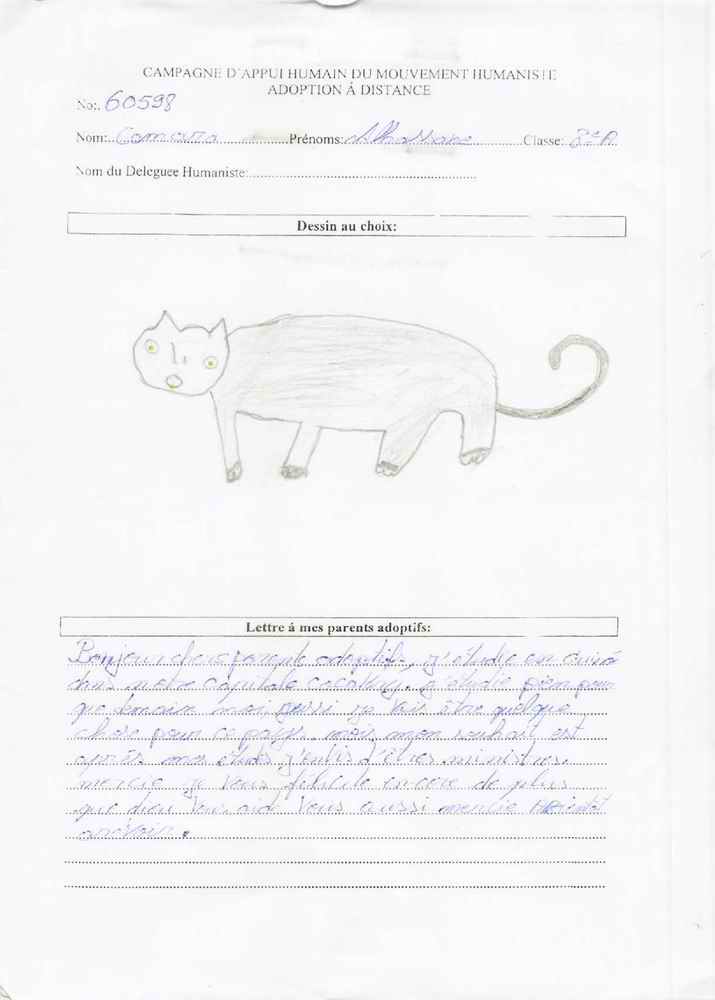 CAMPAGNE D'APPUI HUMAIN DU MOUVEMENT HUMANISTE
ADOPTION Á DISTANCE
No:. 60598
Nom: Camara Prénoms: Alhassane Classe: 8e A
Nom du Deleguee Humaniste:
Dessin au choix:
Lettre á mes parents adoptifs:
Bonjour chers parents adoptifs, j'étudie en
dans notre capitale conakry. j'étudie bien pour
que demain moi aussi je vais être quelque
chose pour ce pays. mois mon souhait est
après mes études j'
mercie je vous felicite encore de plus
que dieu vous aid vous aussi mercie